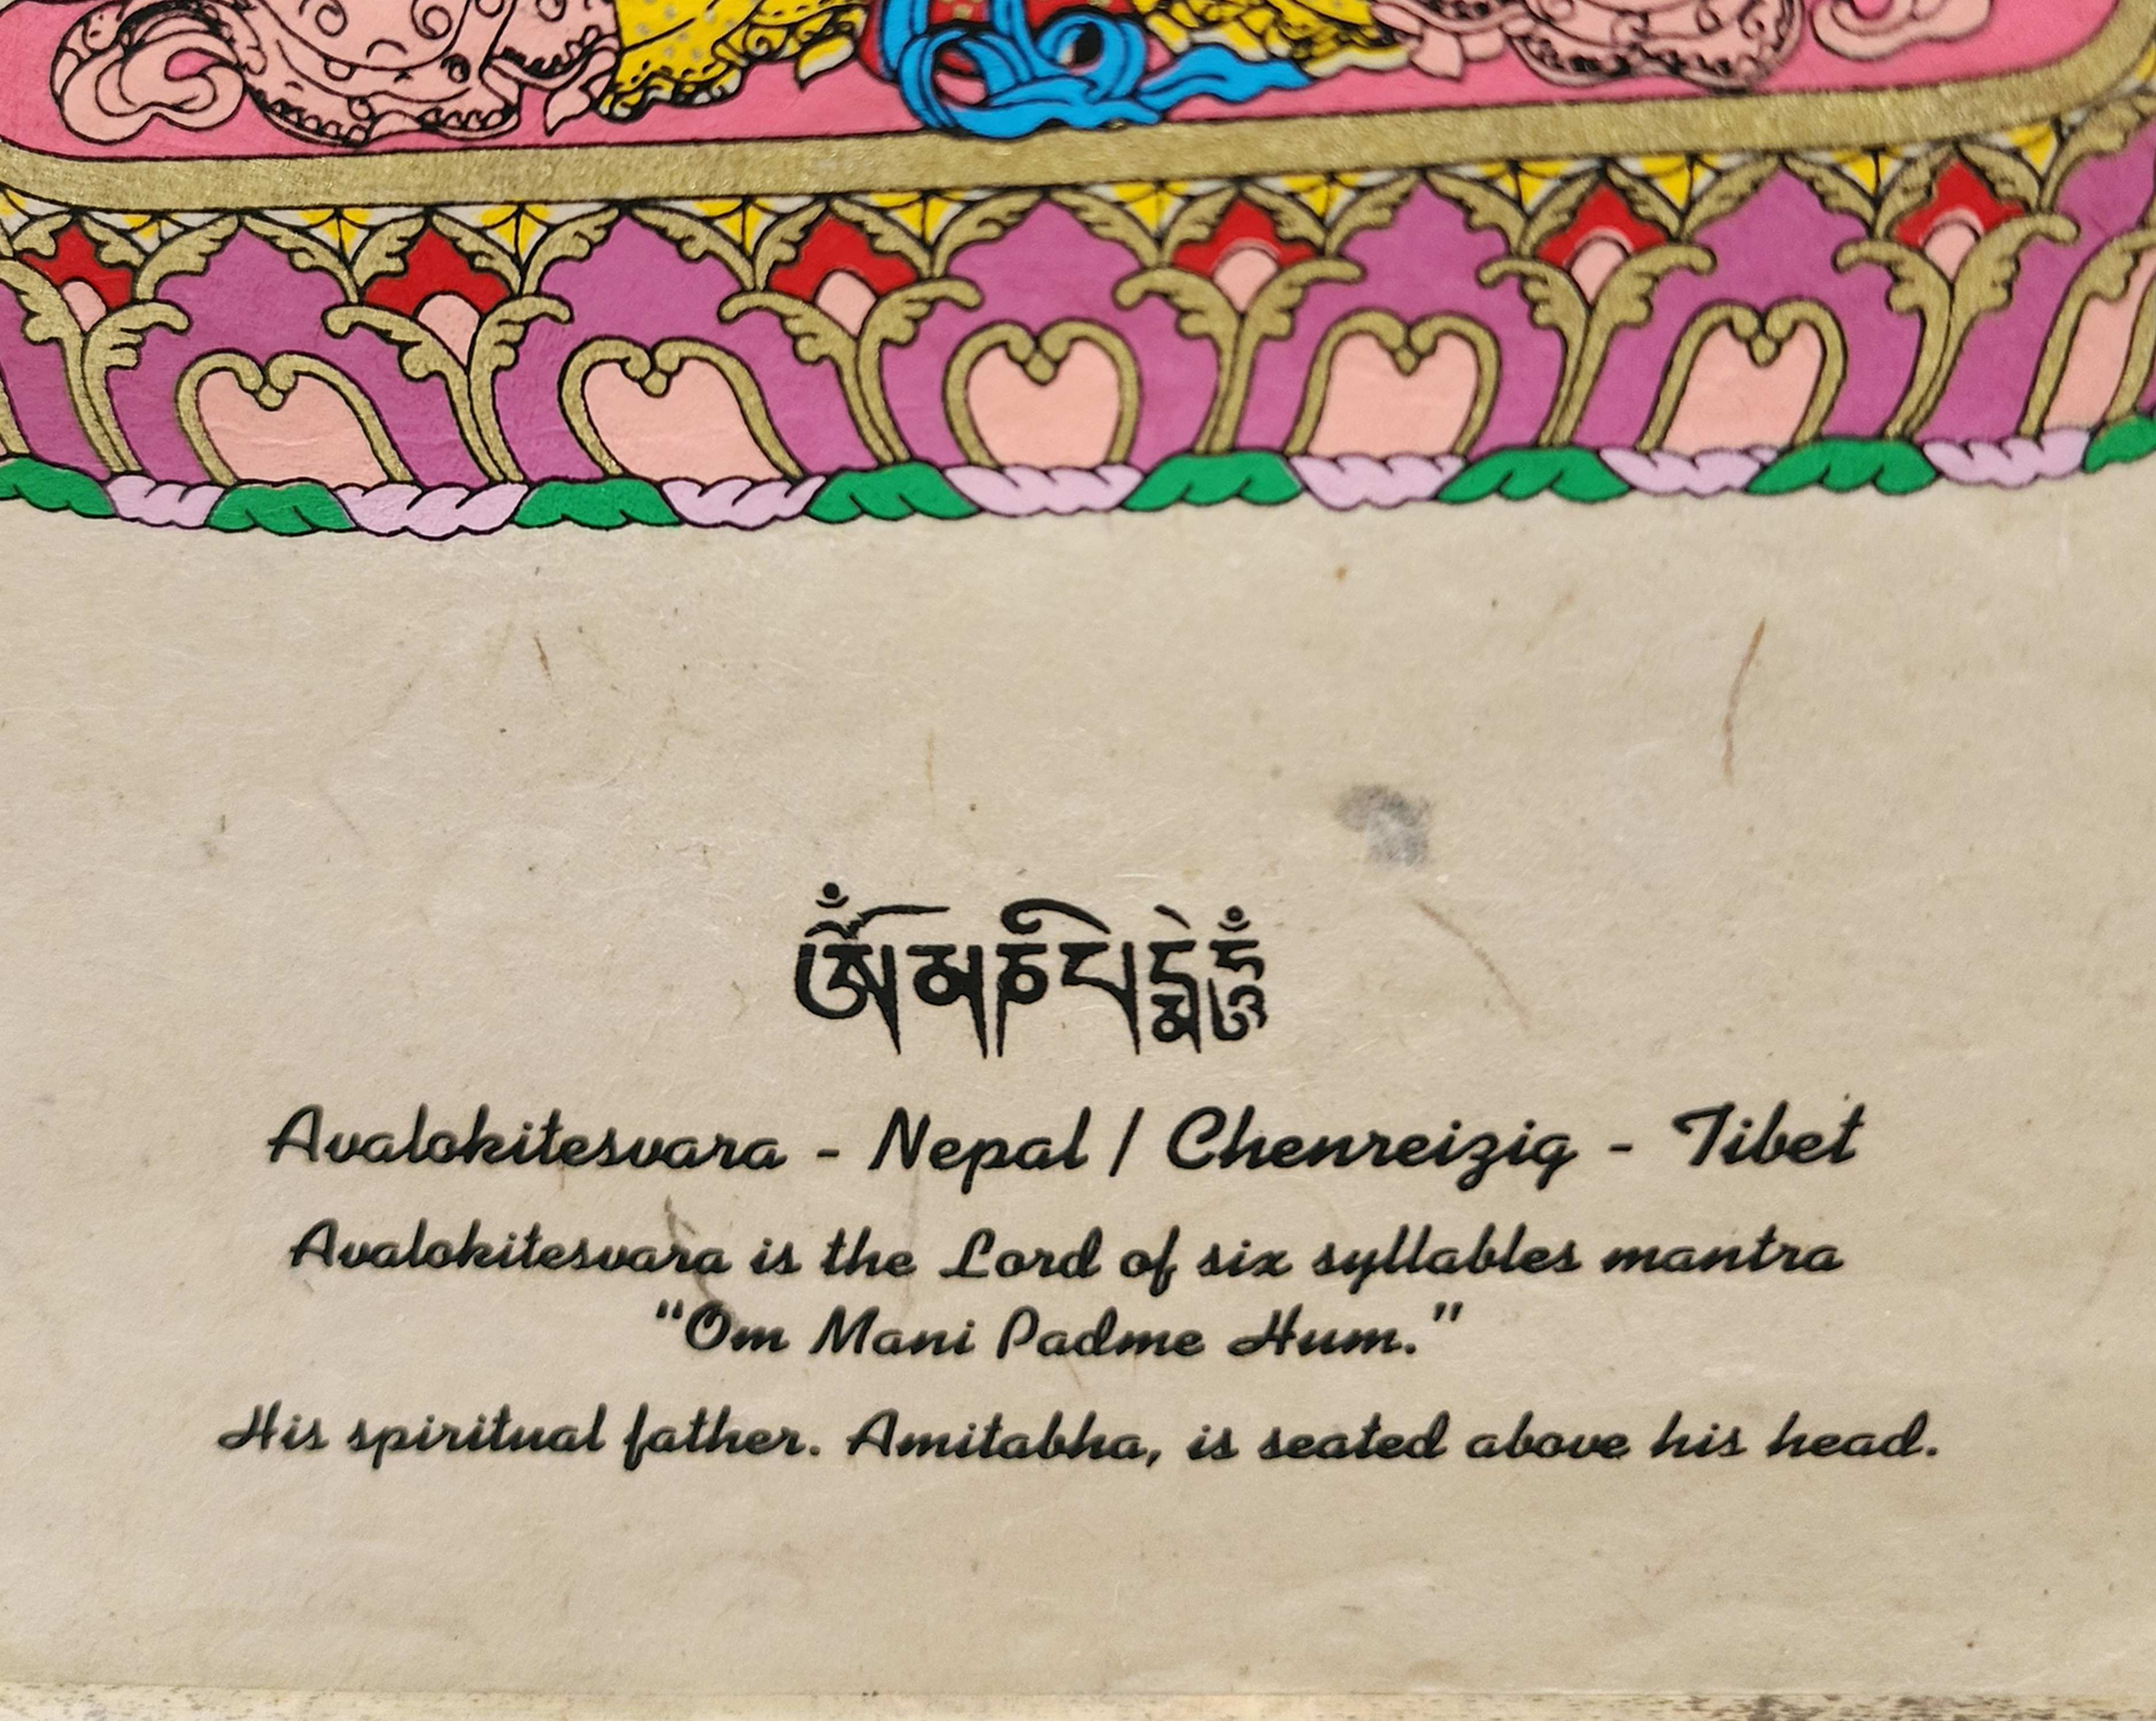 ༀམཎིཔདྨེཧཱུྃ
Avalokitesvara - Nepal / Chenreizig - Tibet
Avalokitesvara is the Lord of six syllables mantra
"Om Mani Padme Hum."
His spiritual father. Amitabha, is seated above his head.